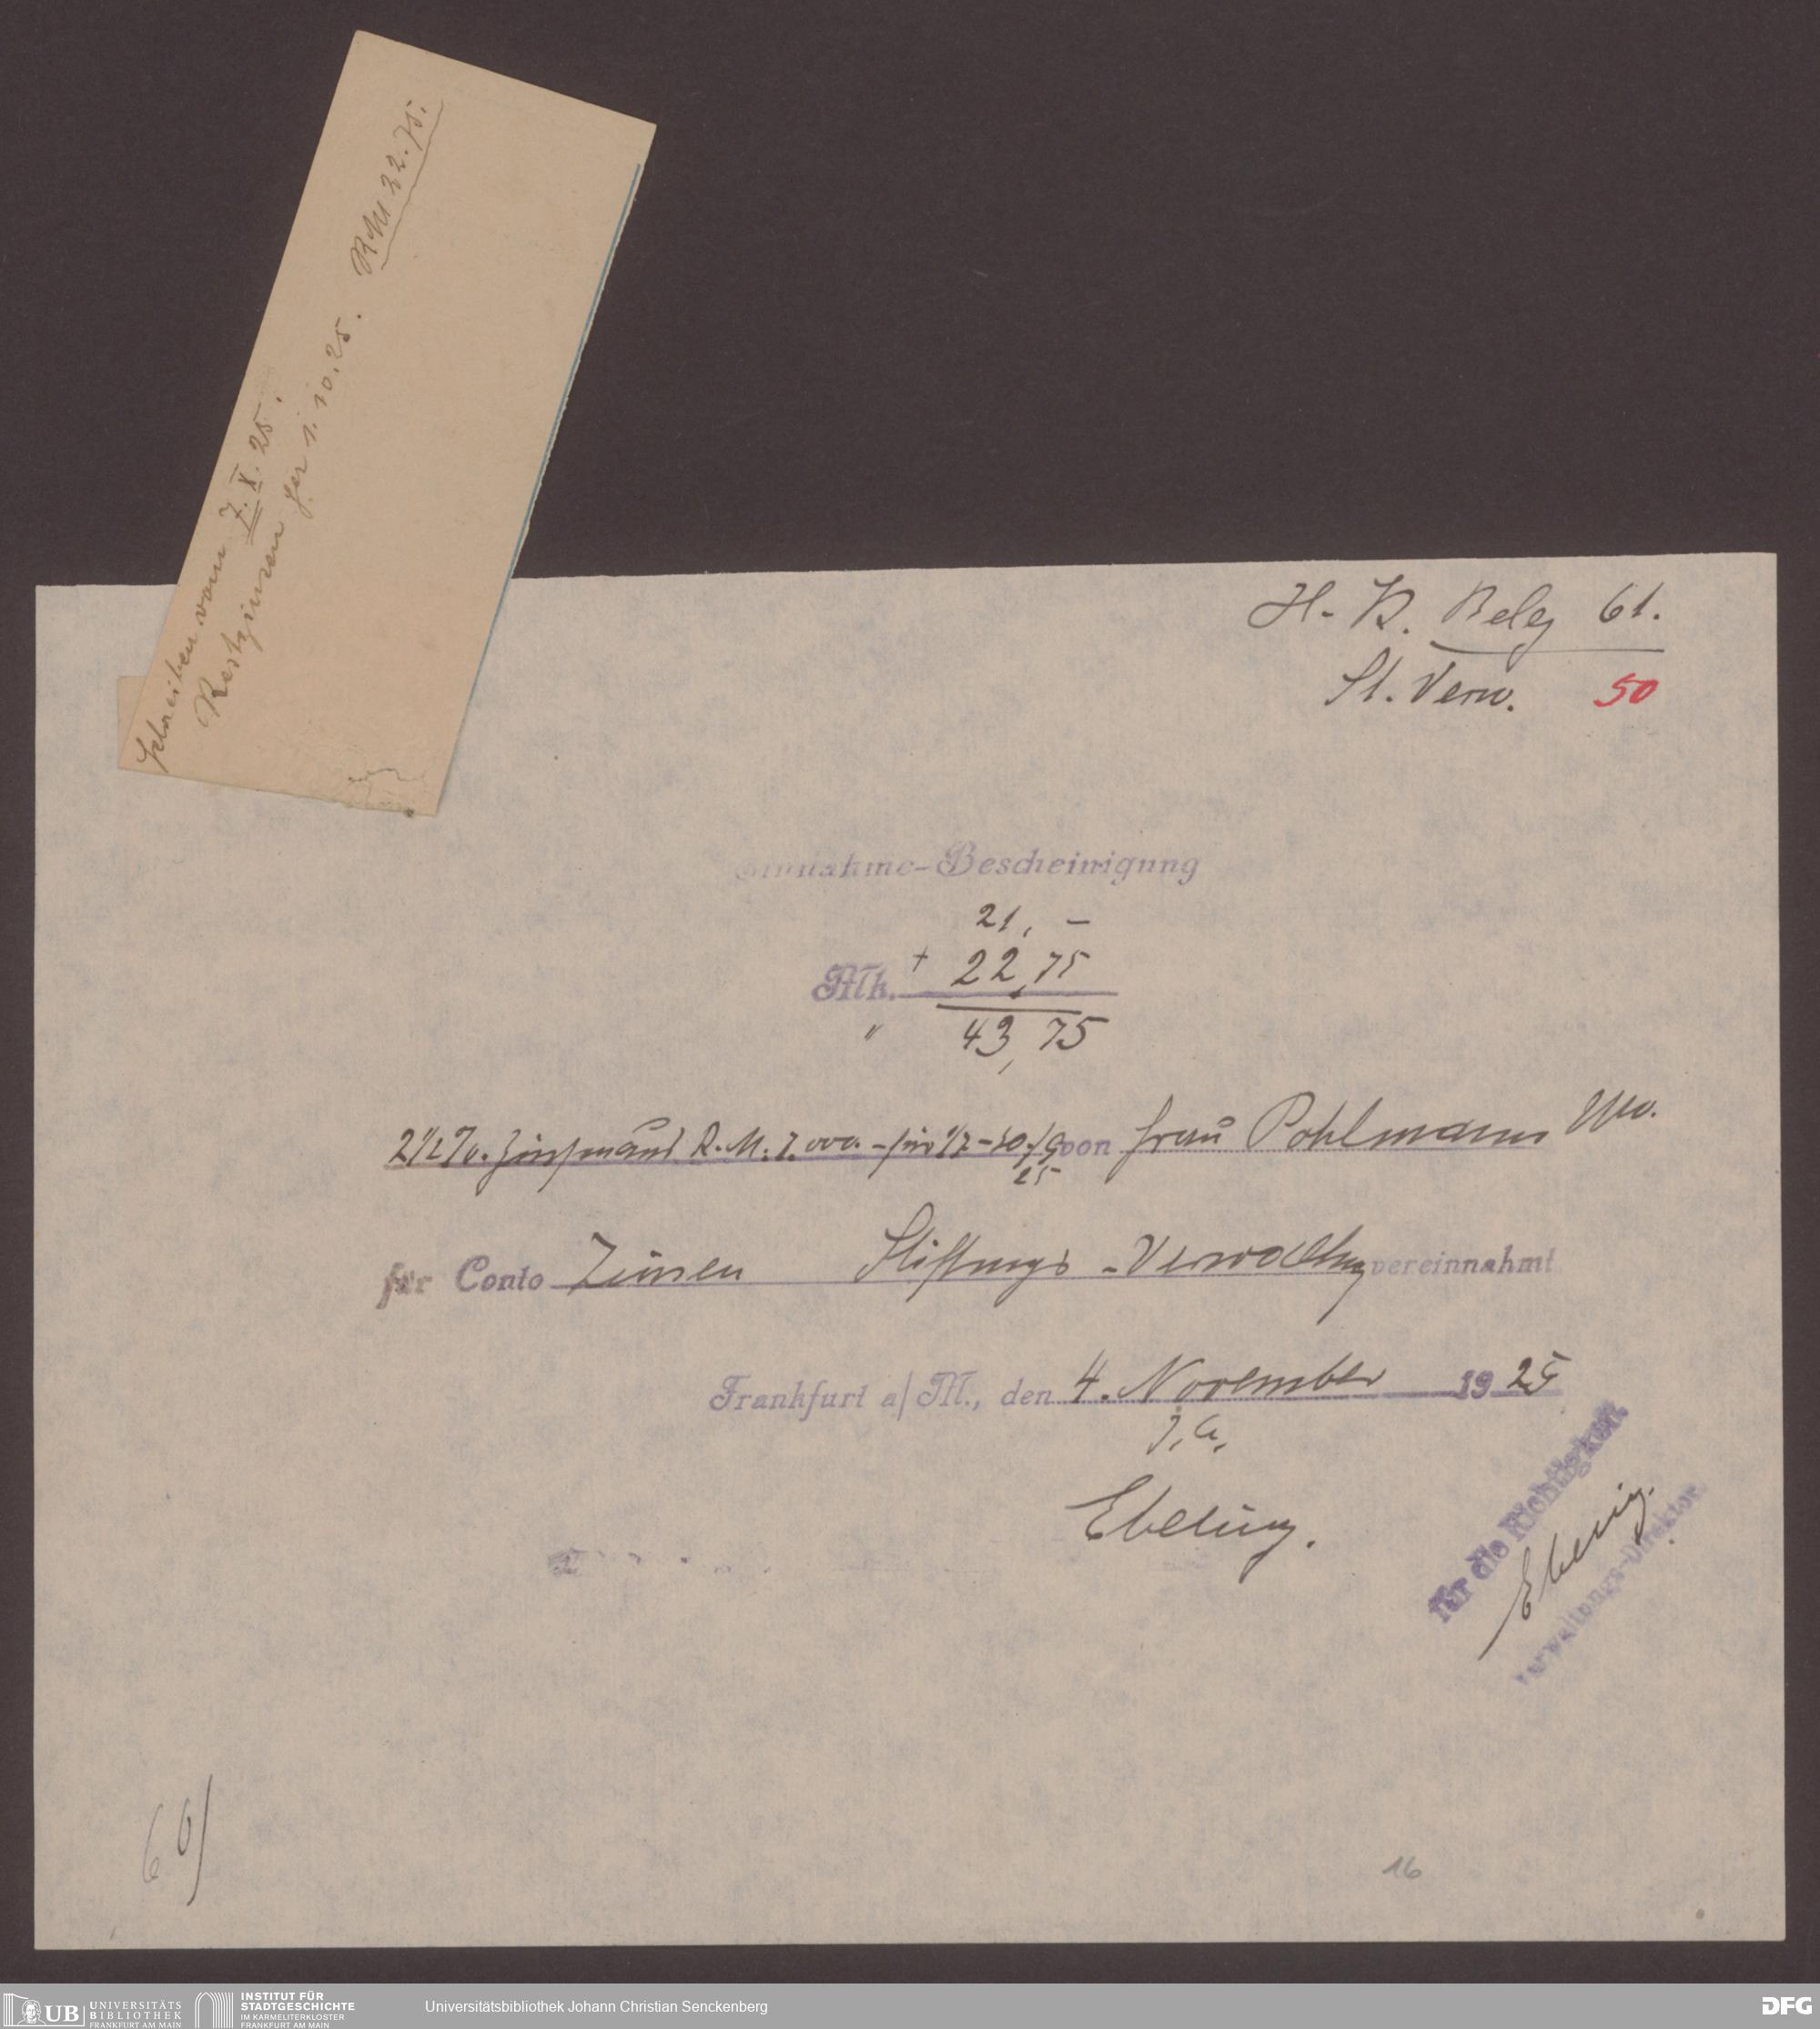 Schreiben vom 7. X. 25.
Restzinsen per 1.10.25. RM 22.75.
H. B. Beleg 61.
St. Verw. 50
Einnahme-Bescheinigung
21, –
Mk. + 22,75
" 43,75
2 1/2 %. R. M. 7.000.– für 1/7 – 30./9 von Frau Pohlmann Ww.
25
für Conto Zinsen Stiftungs-Verwaltung vereinnahmt
Frankfurt a/M., den 4. November 1925
J. A.
Ebeling.
Für die Richtigkeit
Ebeling.
Verwaltungs-Direktor.
16
UB UNIVERSITÄTS BIBLIOTHEK FRANKFURT AM MAIN
INSTITUT FÜR STADTGESCHICHTE IM KARMELITERKLOSTER FRANKFURT AM MAIN
Universitätsbibliothek Johann Christian Senckenberg
DFG